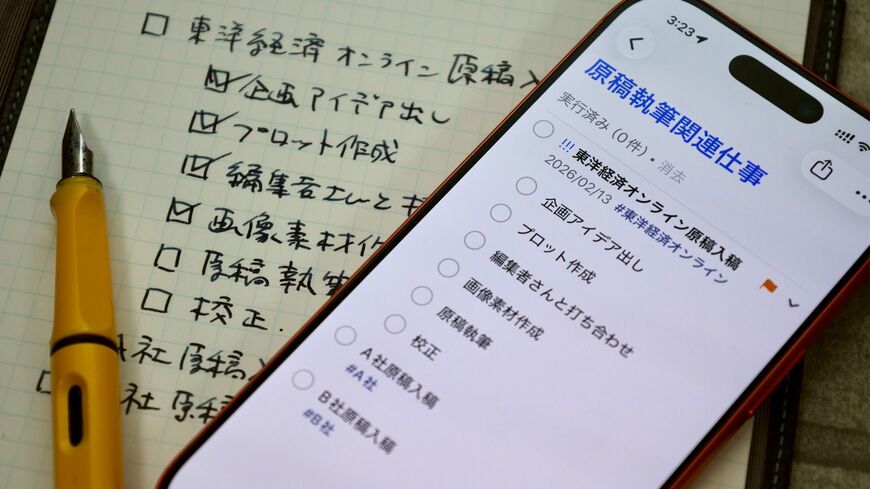 東洋経済オンライン原稿入
企画アイデア出し
プロット作成
編集者さんと
画像素材作
原稿執筆
校正.
A社原稿入
社原稿
3:23
原稿執筆関連仕事
実行済み(0件)・消去
!!! 東洋経済オンライン原稿入稿
2026/02/13 #東洋経済オンライン
企画アイデア出し
プロット作成
編集者さんと打ち合わせ
画像素材作成
原稿執筆
校正
A社原稿入稿
#A社
B社原稿入稿
#B社